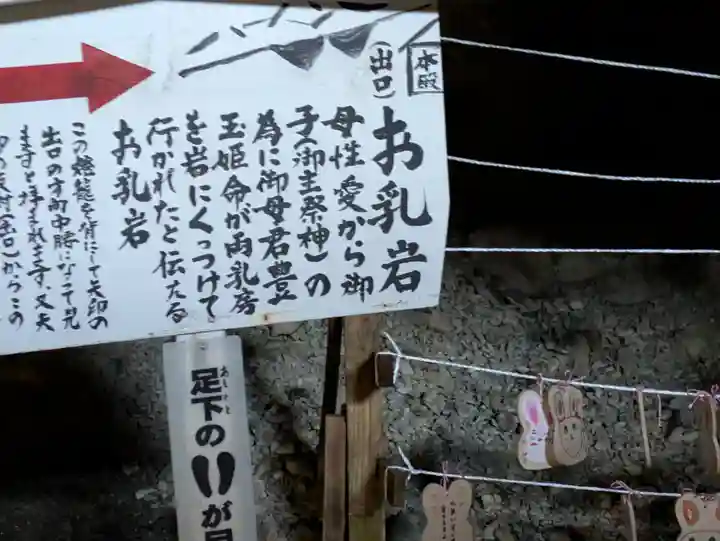 本殿
(出口)
お乳岩
母性愛から御
子(御主祭神)の
為に御母君豊
玉姫命が両乳房
を岩にくっつけて
行かれたと伝たる
お乳岩
この燈籠を背にして矢印の
出口の方向中腹になって見
ますと拝まれます、又天
からこの
足下の
あしもと
が見